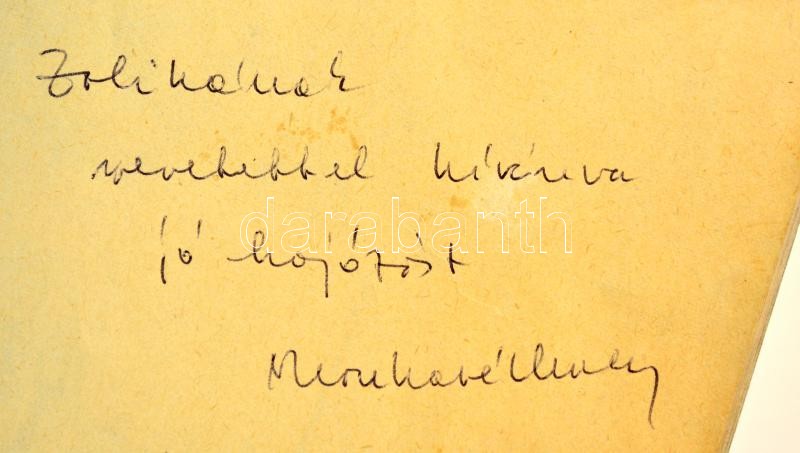 Zolikának
szeretettel kívánva
jó hajózást
darabanth